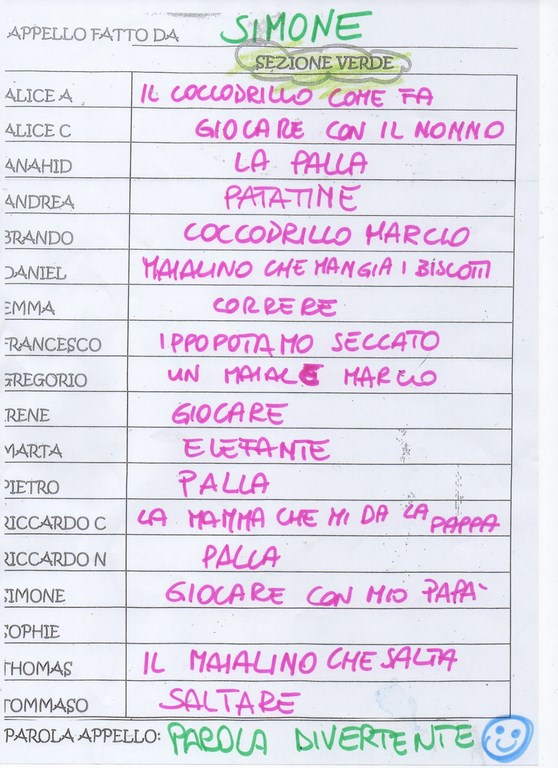 APPELLO FATTO DA SIMONE
SEZIONE VERDE
ALICE A IL COCCODRILLO COME FA
ALICE C GIOCARE CON IL NONNO
ANAHID LA PALLA
ANDREA PATATINE
BRANDO COCCODRILLO MARCIO
DANIEL MAIALINO CHE MANGIA I BISCOTTI
EMMA CORRERE
FRANCESCO IPPOPOTAMO SECCATO
GREGORIO UN MAIALE MARCIO
IRENE GIOCARE
MARTA ELEFANTE
PIETRO PALLA
RICCARDO C LA MAMMA CHE MI DA LA PAPPA
RICCARDO N PALLA
SIMONE GIOCARE CON MIO PAPA'
SOPHIE
THOMAS IL MAIALINO CHE SALTA
TOMMASO SALTARE
PAROLA APPELLO: PAROLA DIVERTENTE